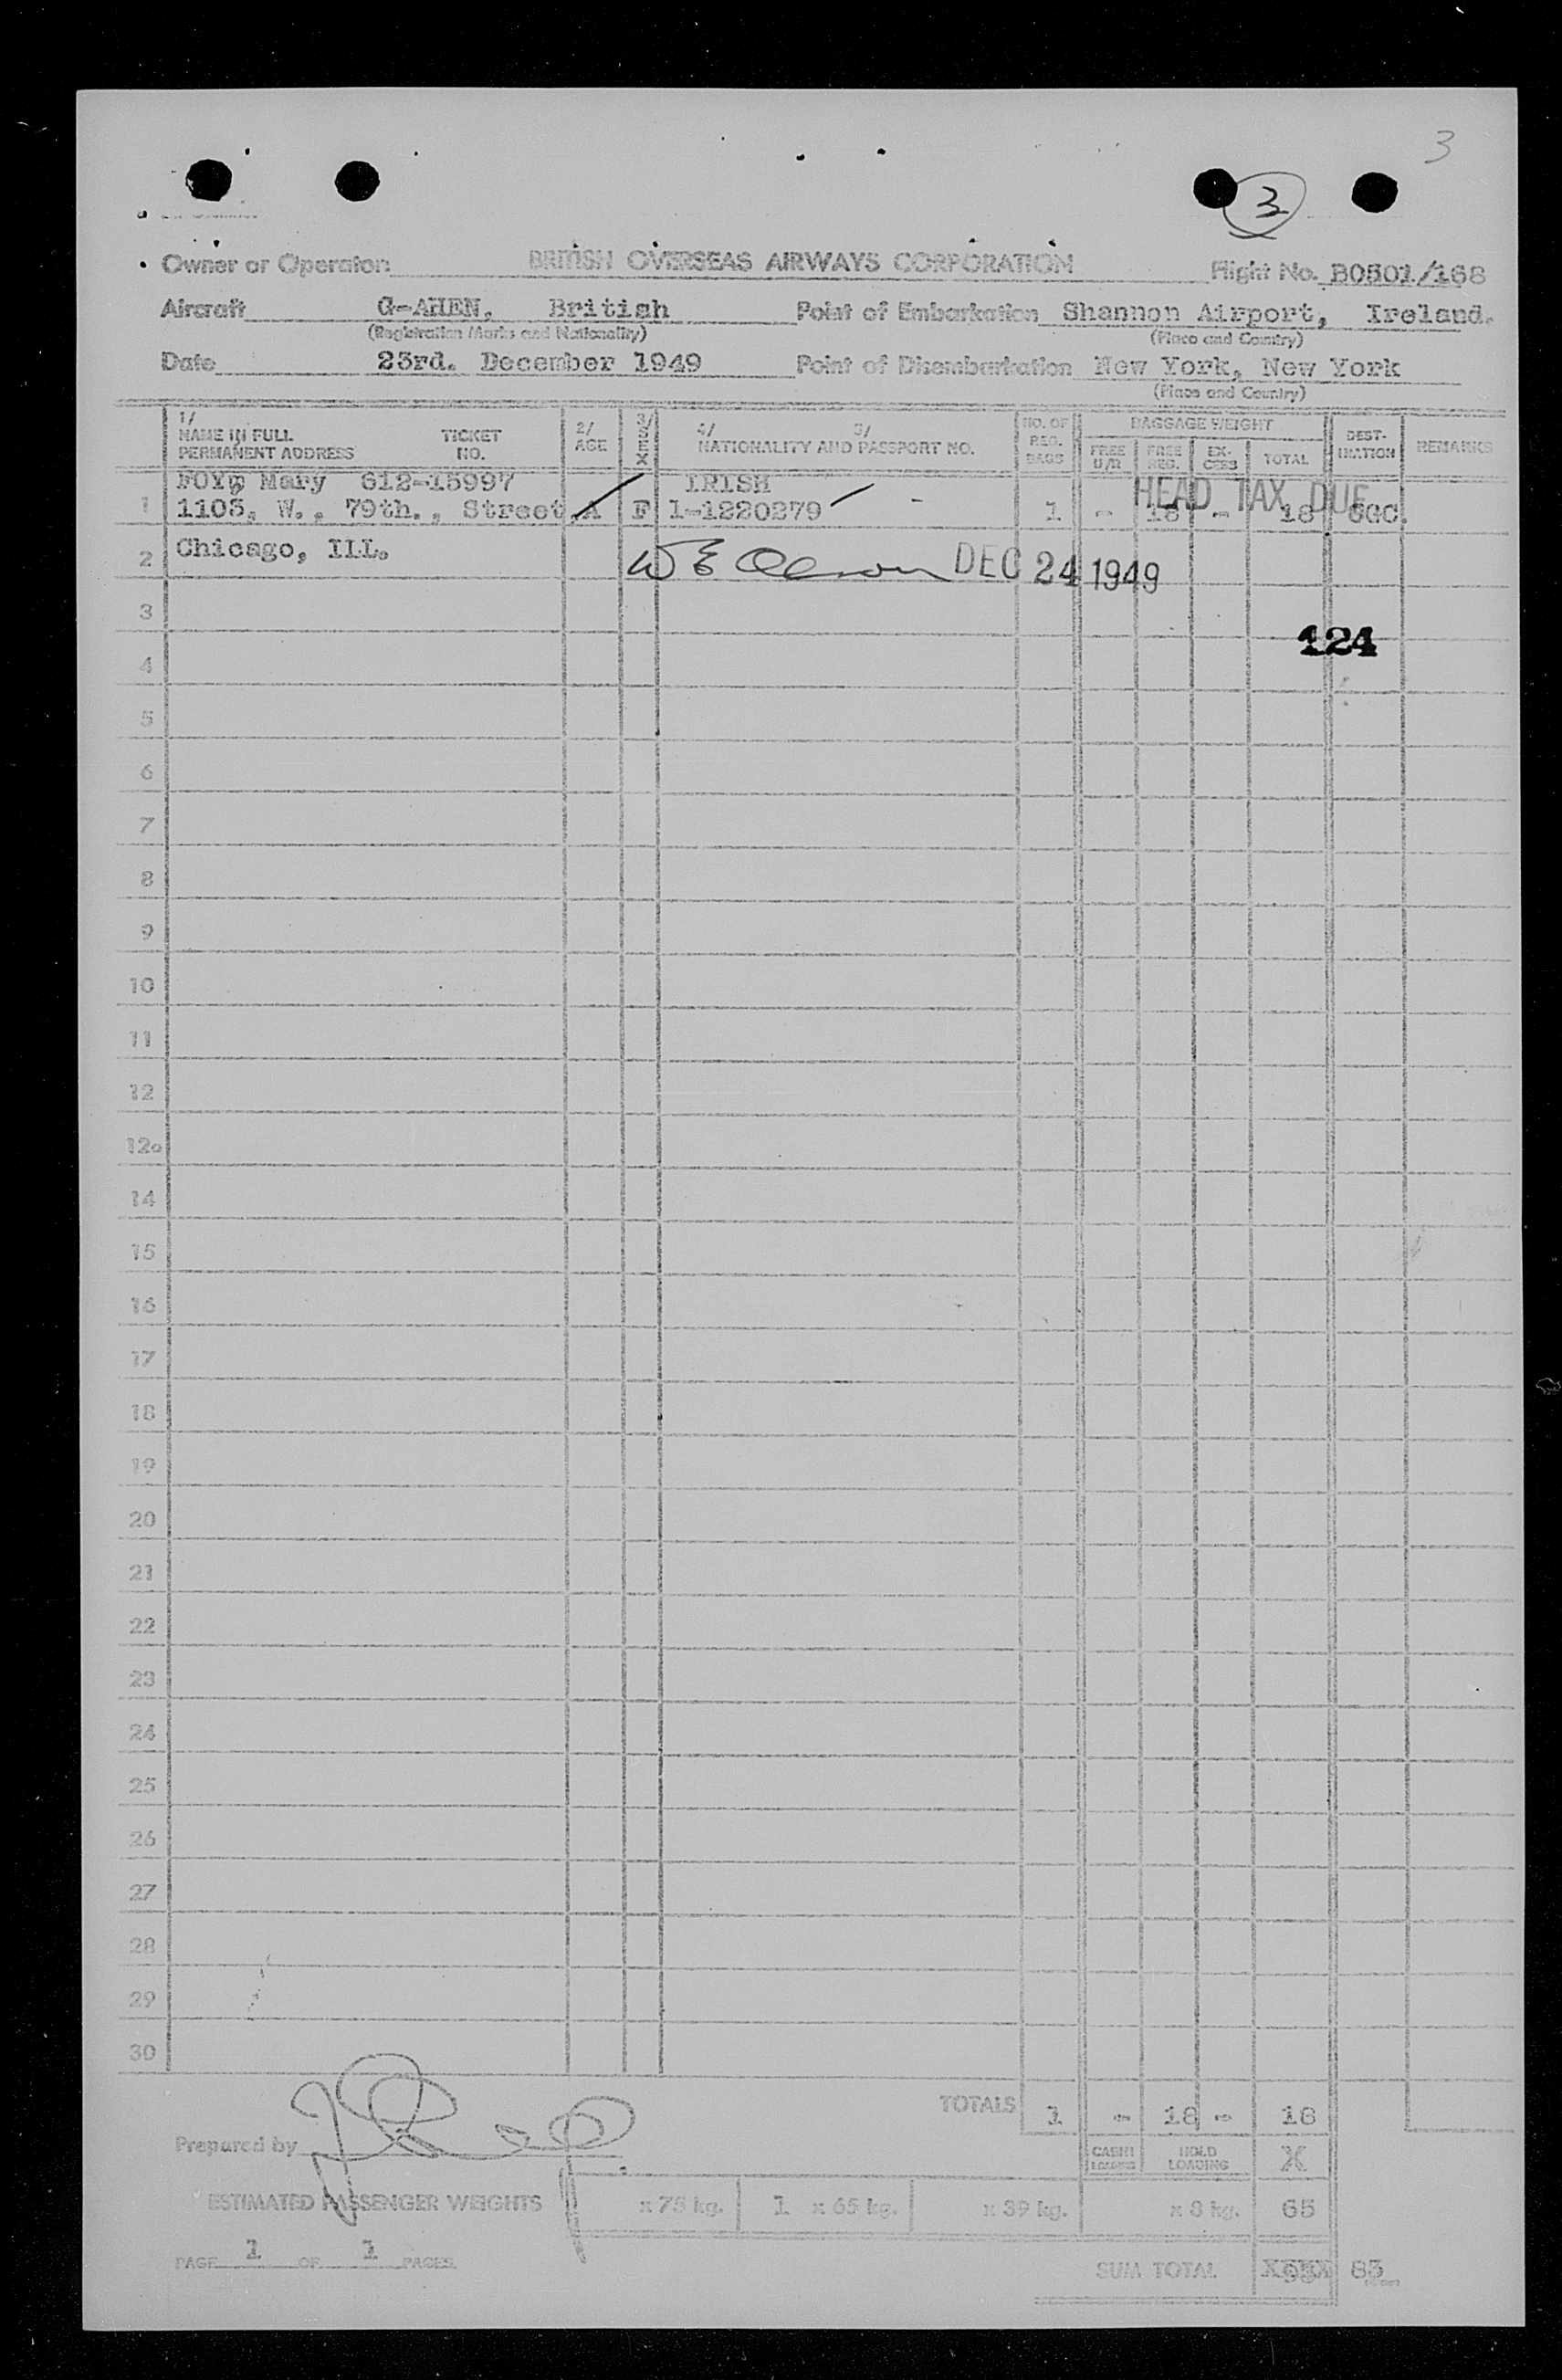 3
3
Owner or Operator BRITISH OVERSEAS AIRWAYS CORPORATION Flight No. B0501/168
Aircraft G-AHEN. British Point of Embarkation Shannon Airport, Ireland.
(Registration Marks and Nationality) (Place and Country)
Date 23rd. December 1949 Point of Disembarkation New York, New York
(Place and Country)
1/ NAME IN FULL PERMANENT ADDRESS TICKET NO. 2/ AGE 3/ SEX 4/ 5/ NATIONALITY AND PASSPORT NO. NO. OF REG. BAGS BAGGAGE WEIGHT FREE U/R FREE REG. EX-CESS TOTAL DEST-INATION REMARKS
FOX, Mary 612-15997 IRISH
HEAD TAX DUE
1 1105, W., 79th., Street, A F 1-1220279 - 1 - 18 - 18 CGC.
2 Chicago, ILL. DEC 24 1949
3
124
4
5
6
7
8
9
10
11
12
12a
14
15
16
17
18
19
20
21
22
23
24
25
26
27
28
29
30
TOTALS 1 - 18 - 18
Prepared by CABIN LOADING HOLD LOADING X
ESTIMATED PASSENGER WEIGHTS x 75 kg. 1 x 65 kg. x 39 kg. x 8 kg. 65
PAGE 1 OF 1 PAGES
SUM TOTAL 83